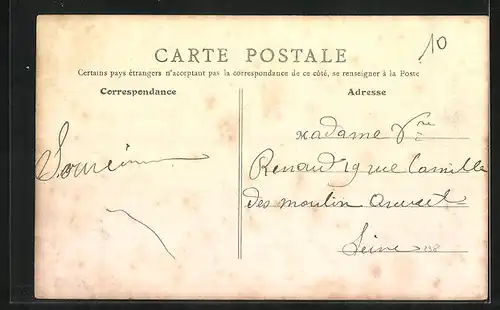 10
CARTE POSTALE
Certains pays étrangers n'acceptant pas la correspondance de ce côté, se renseigner à la Poste
Correspondance
Adresse
Madame Vve
Renaud 19 rue Camille
des moulin
Seine